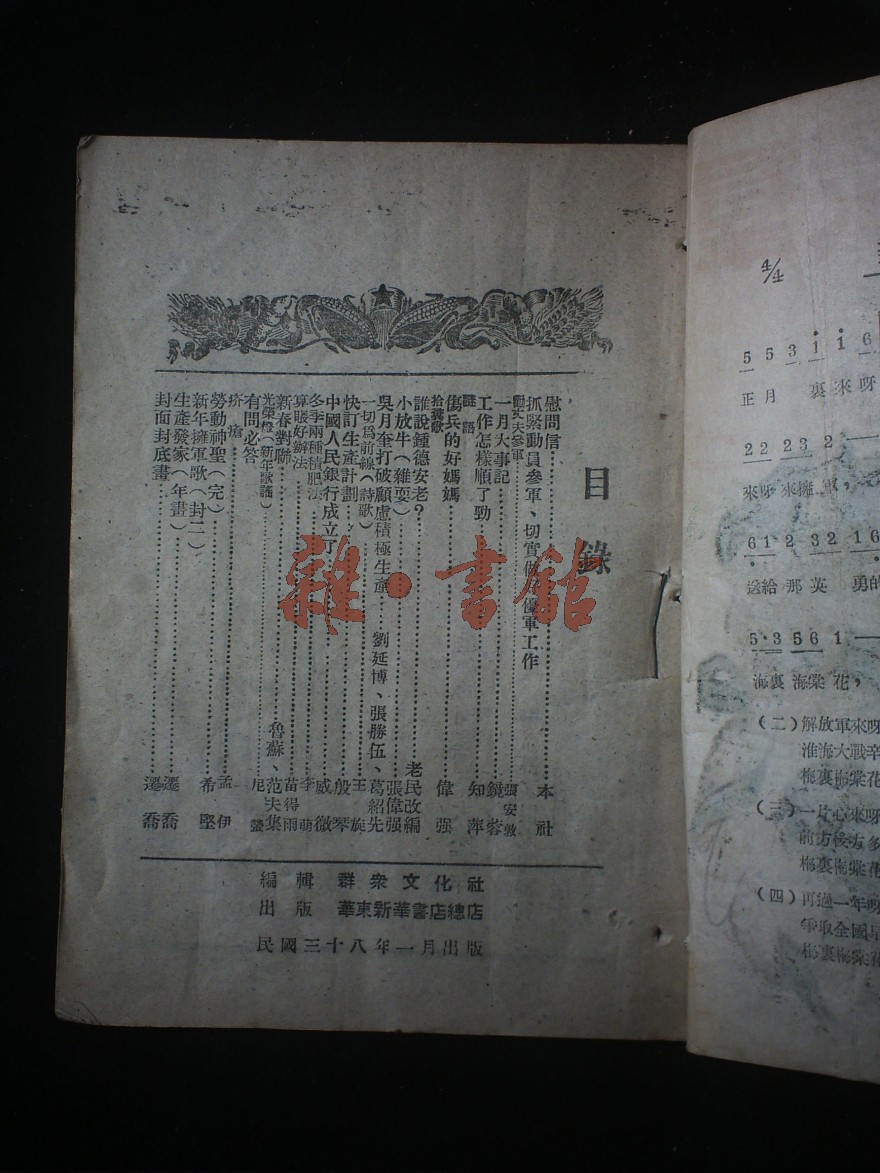 目錄
慰問信 本社
抓緊動員參軍、切實做好優軍工作
勸丈夫參軍 張安敦
一月大事記 鏡蓉
工作怎樣順了勁 知萍
謎語
傷兵的好媽媽 偉强
拾糞歌
誰說鍾德安老？ 老民改編
小放牛（雜耍） 張偉强
吳月奎打破顧慮積極生產 劉延博、張勝伍、葛紹先
一切爲前線（詩歌） 王旋
快訂生產計劃 殷琴
中國人民銀行成立了 威微
冬季兩種積肥法 李萌
算賬好辦法 苗得雨
新春對聯 魯蘇、范夫集
光榮燈（新年歌謠）
有問必答 尼瑩
疥瘡 孟伊
勞動神聖（完）
新年擁軍歌（封二） 希堅
生產發家（年畫） 遷喬
封面封底畫 遷喬
編輯 群衆文化社
出版 華東新華書店總店
民國三十八年一月出版
雜·書館
4/4
5 5 3 1 1 6
正月 裏來呀
2 2 2 3 2 —
來呀來擁軍，
6 1 2 3 2 1 6
送給那英 勇的
5·3 5 6 1 —
海裏海棠花，
（二）解放軍來呀
淮海大戰辛
梅裏梅棠花
（三）一片心來呀
前方後方多
梅裏梅棠花
（四）再過一年呀
爭取全國
梅裏梅棠花